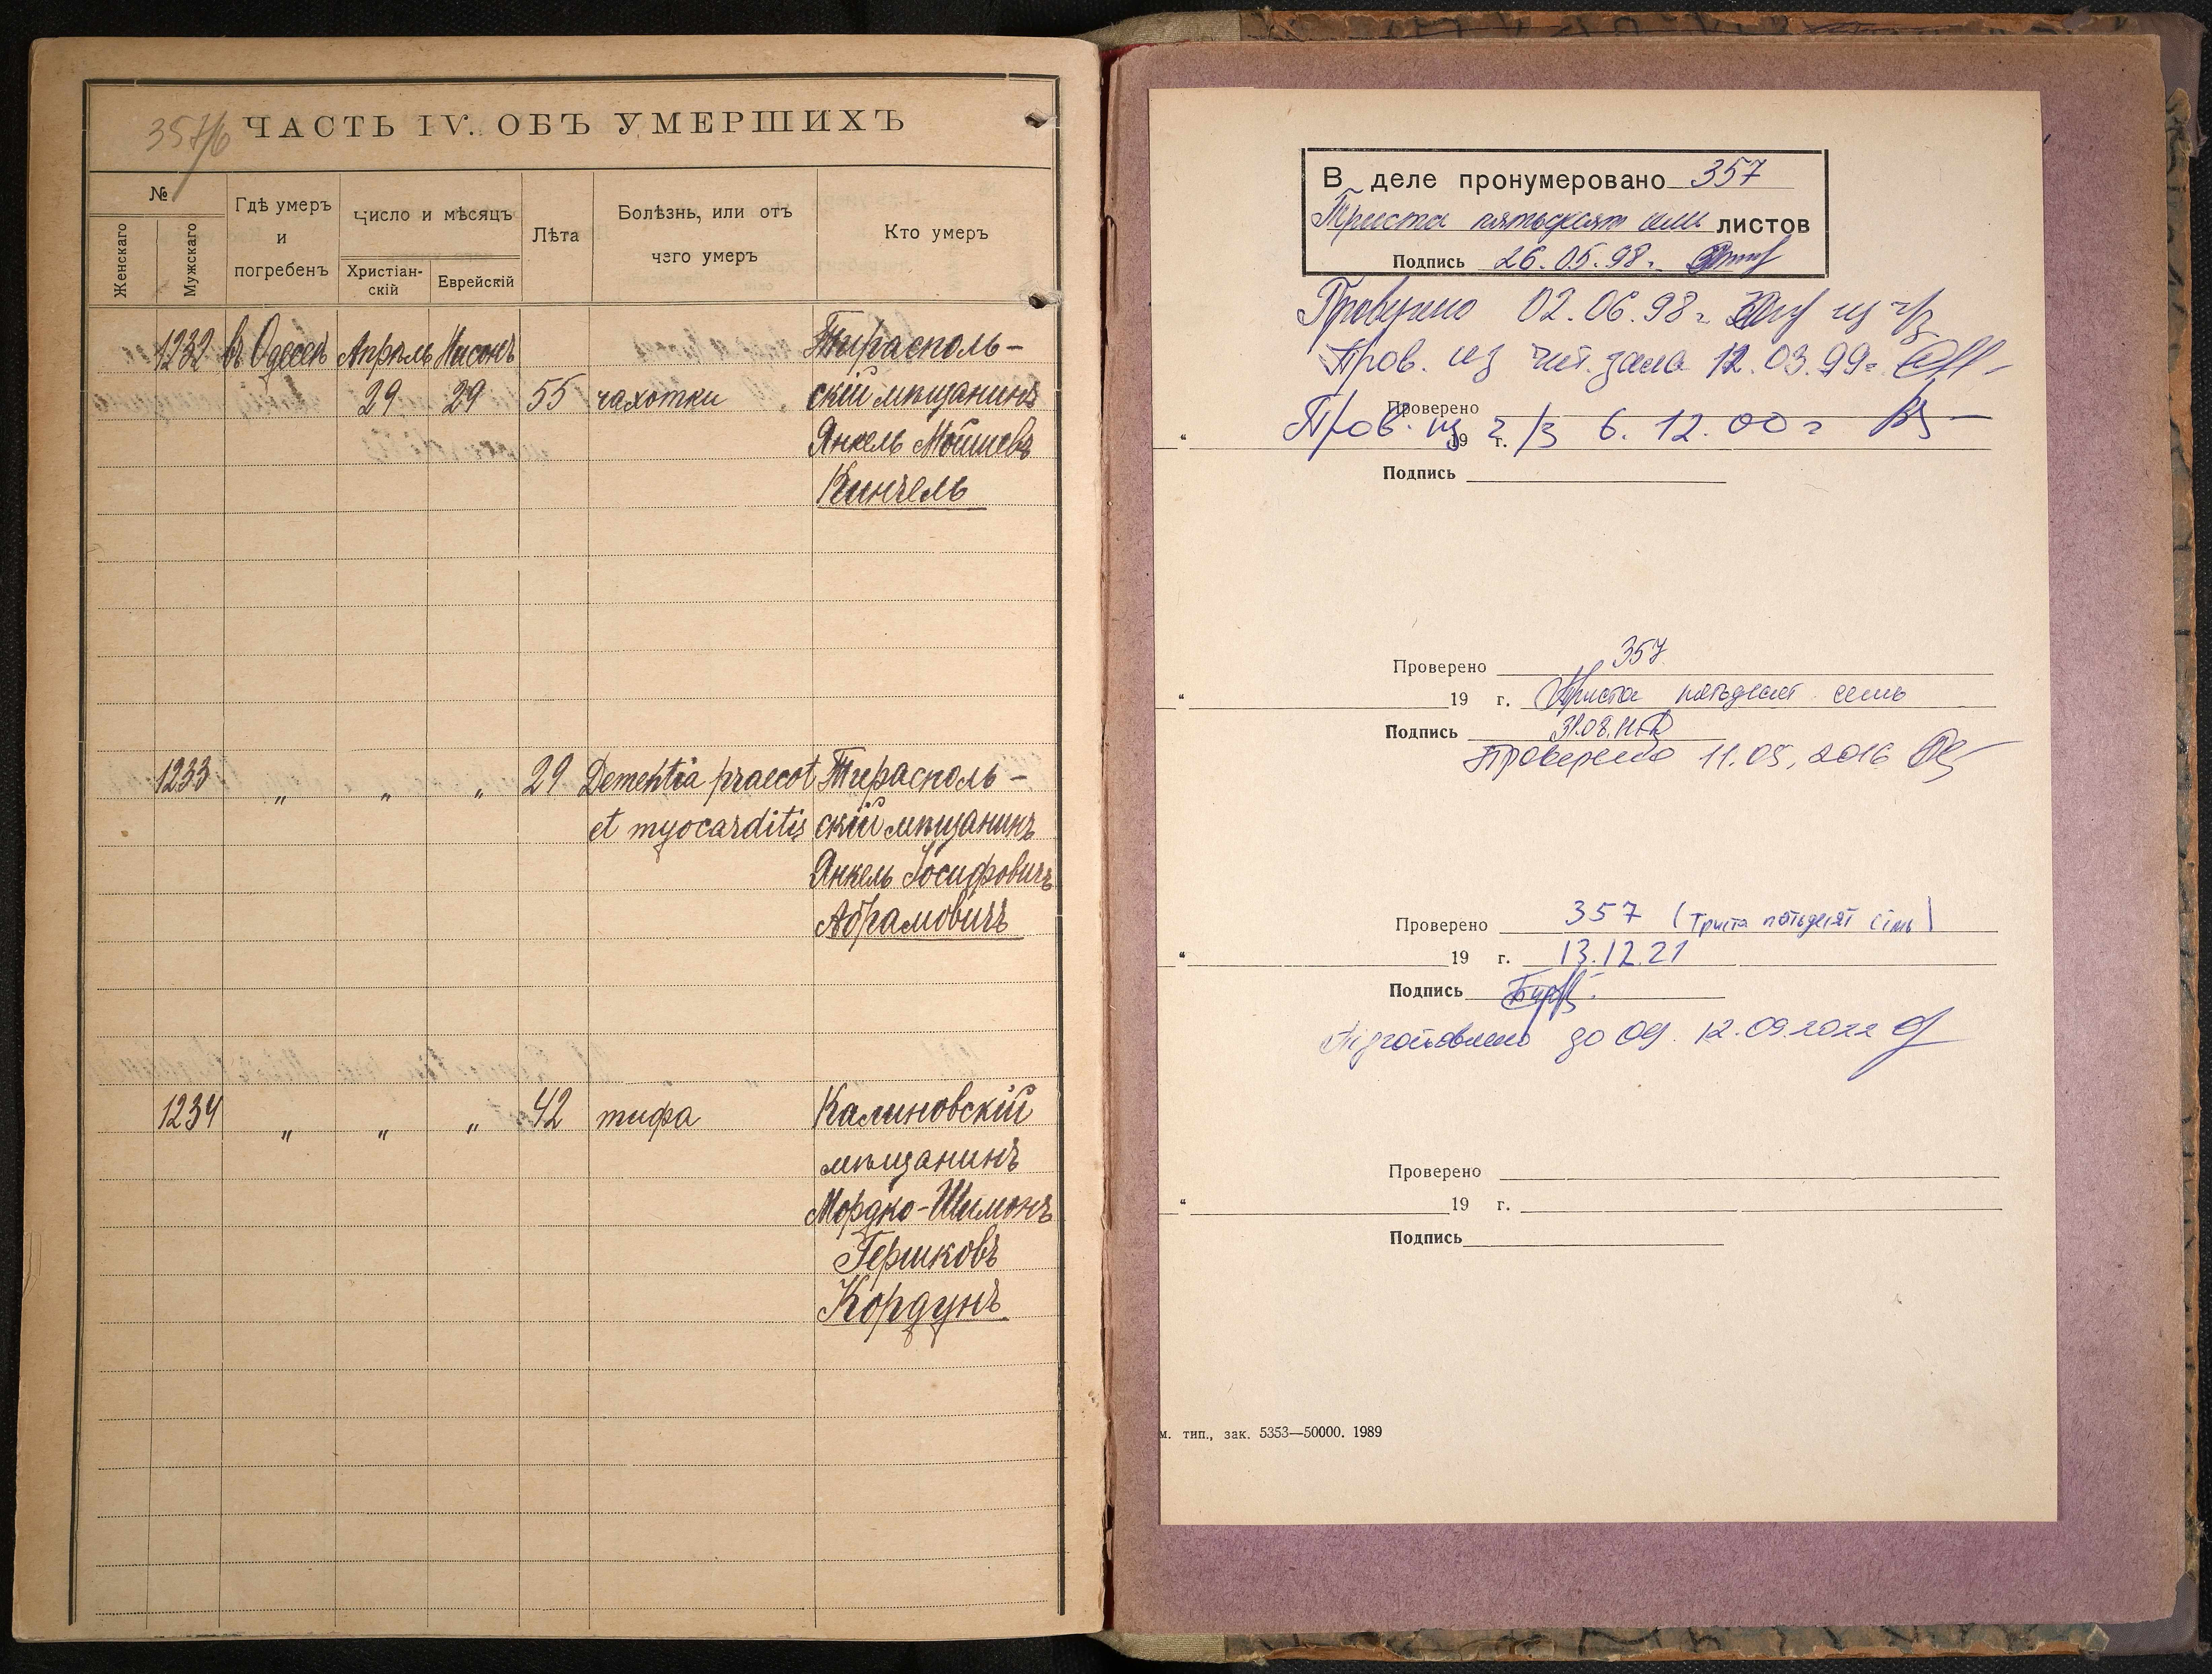 357/б
ЧАСТЬ IV. ОБЪ УМЕРШИХЪ
№
Женскаго
Мужскаго
Гдѣ умеръ
и
погребенъ
Число и мѣсяцъ
Христіан-
скій
Еврейскій
Лѣта
Болѣзнь, или отъ
чего умеръ
Кто умеръ
1232 въ Одессѣ Апрѣль Нисонъ Тирасполь-
29 29 55 чахотки скій мѣщанинъ
Янкель Мошіевъ
Кинчель
1233 " " " 29 Dementia praecot Тирасполь-
et myocarditis скій мѣщанинъ
Янкель Іосифовичъ
Абрамовичъ
1234 " " " 42 тифа Калиновскій
мѣщанинъ
Мордко-Шимонъ
Гершковъ
Кордунъ
В деле пронумеровано 357
Триста пятьдесят семь листов
Подпись 26.05.98г.
Проверено 02.06.98г. из ч/з
Пров. из чит. зала 12.03.99г.
Проверено
Пров. из ч/з 6.12.00г
" 19 г.
Подпись
Проверено 357
" 19 г. Триста пятьдесят семь
Подпись 31.08.
Проверено 11.05.2016
Проверено 357 (Триста пятьдесят сімь)
" 19 г. 13.12.21
Подпись
Підготовлено до 09. 12.09.2022
Проверено
" 19 г.
Подпись
м. тип., зак. 5353—50000. 1989